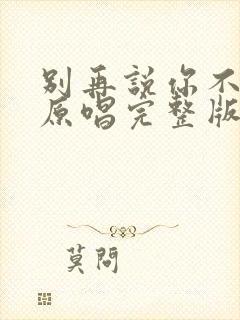 别再說你不
原唱完整版
莫問